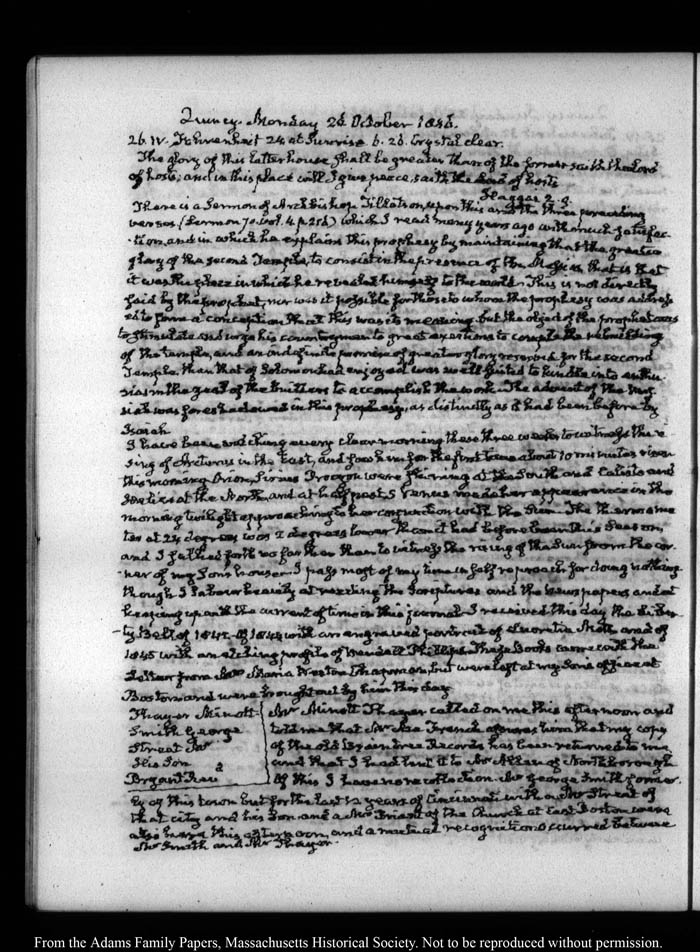 Quincy. Monday 26. October 1846.
26. IV. Fahrenheit 24 at Sunrise 6. 26. Crystal clear.
The glory of this latter house, shall be greater than of the former saith the Lord
of hosts; and in this place will I give peace, saith the Lord of hosts
Haggai 2. 9.
There is a Sermon of Archbishop Tillotson, upon this and the three preceding
verses. (Sermon vol. 4. p.) which I read many years ago with much satisfac-
-tion, and in which he explains this prophecy by maintaining that the greater
glory of the second Temple, to consist in the presence of the Messiah, that is that
it was the place in which he revealed himself to the world. This is not directly
said by the prophet, nor was it possible for those to whom the prophecy was address
ed to form a conception that this was its meaning, but the object of the prophet was
to stimulate and urge his countrymen to great exertions to complete the rebuilding
of the temple, and an indefinite promise of greater glory reserved for the second
Temple, than that of Solomon had enjoyed was well suited to kindle into enthu-
siasm the zeal of the builders to accomplish the work. The advent of the Mes
siah was foreshadowed in this prophecy, as distinctly as it had been before by
Isaiah
I have been watching every clear morning these three weeks to witness the ri
sing of Arcturus in the East, and saw him for the first time about 10 minutes risen
this morning. Orion, Sirius Procyon were shining at the South and Calisto and
at the North, and at half past 5 Venus made her appearance in the
morning twilight approaching to her conjunction with the Sun. The thermome
ter at 24 degrees was 2 degrees lower than it had before been this Season,
and I sallied forth no farther than to witness the rising of the Sun from the cor-
ner of my Son's house. I pass most of my time in self reproach for doing nothing
though I labour heavily at reading the Scriptures and the newspapers and at
keeping up with the current of time in this journal. I received this day the Liber-
-ty Bell of 1842. of 1844 with an engraved portrait of Lucretia Mott and of
1845 with an etching profile of Wendell Phillips. These Books came with the
Letter from Mrs Maria Weston Chapman, but were left at my Sons office at
Boston and were brought out by him this day
Thayer Minott Mr Minott Thayer called on me this afternoon and
Smith George told me that Mr Asa French assures him that my copy
Streat Mr of the old Braintree Records has been returned to me
His Son and that I had lent it to Mr Allen of Northborough
Bryant of this I have no recollection. Mr George Smith former-
ly of this town but for the last 12 years of Cincinnati with a Mr Streat of
that city and his Son and a Mr of the Church at East Boston were
also here this afternoon, and a mutual recognition occurred between
Mr Smith and Mr Thayer.
From the Adams Family Papers, Massachusetts Historical Society. Not to be reproduced without permission.